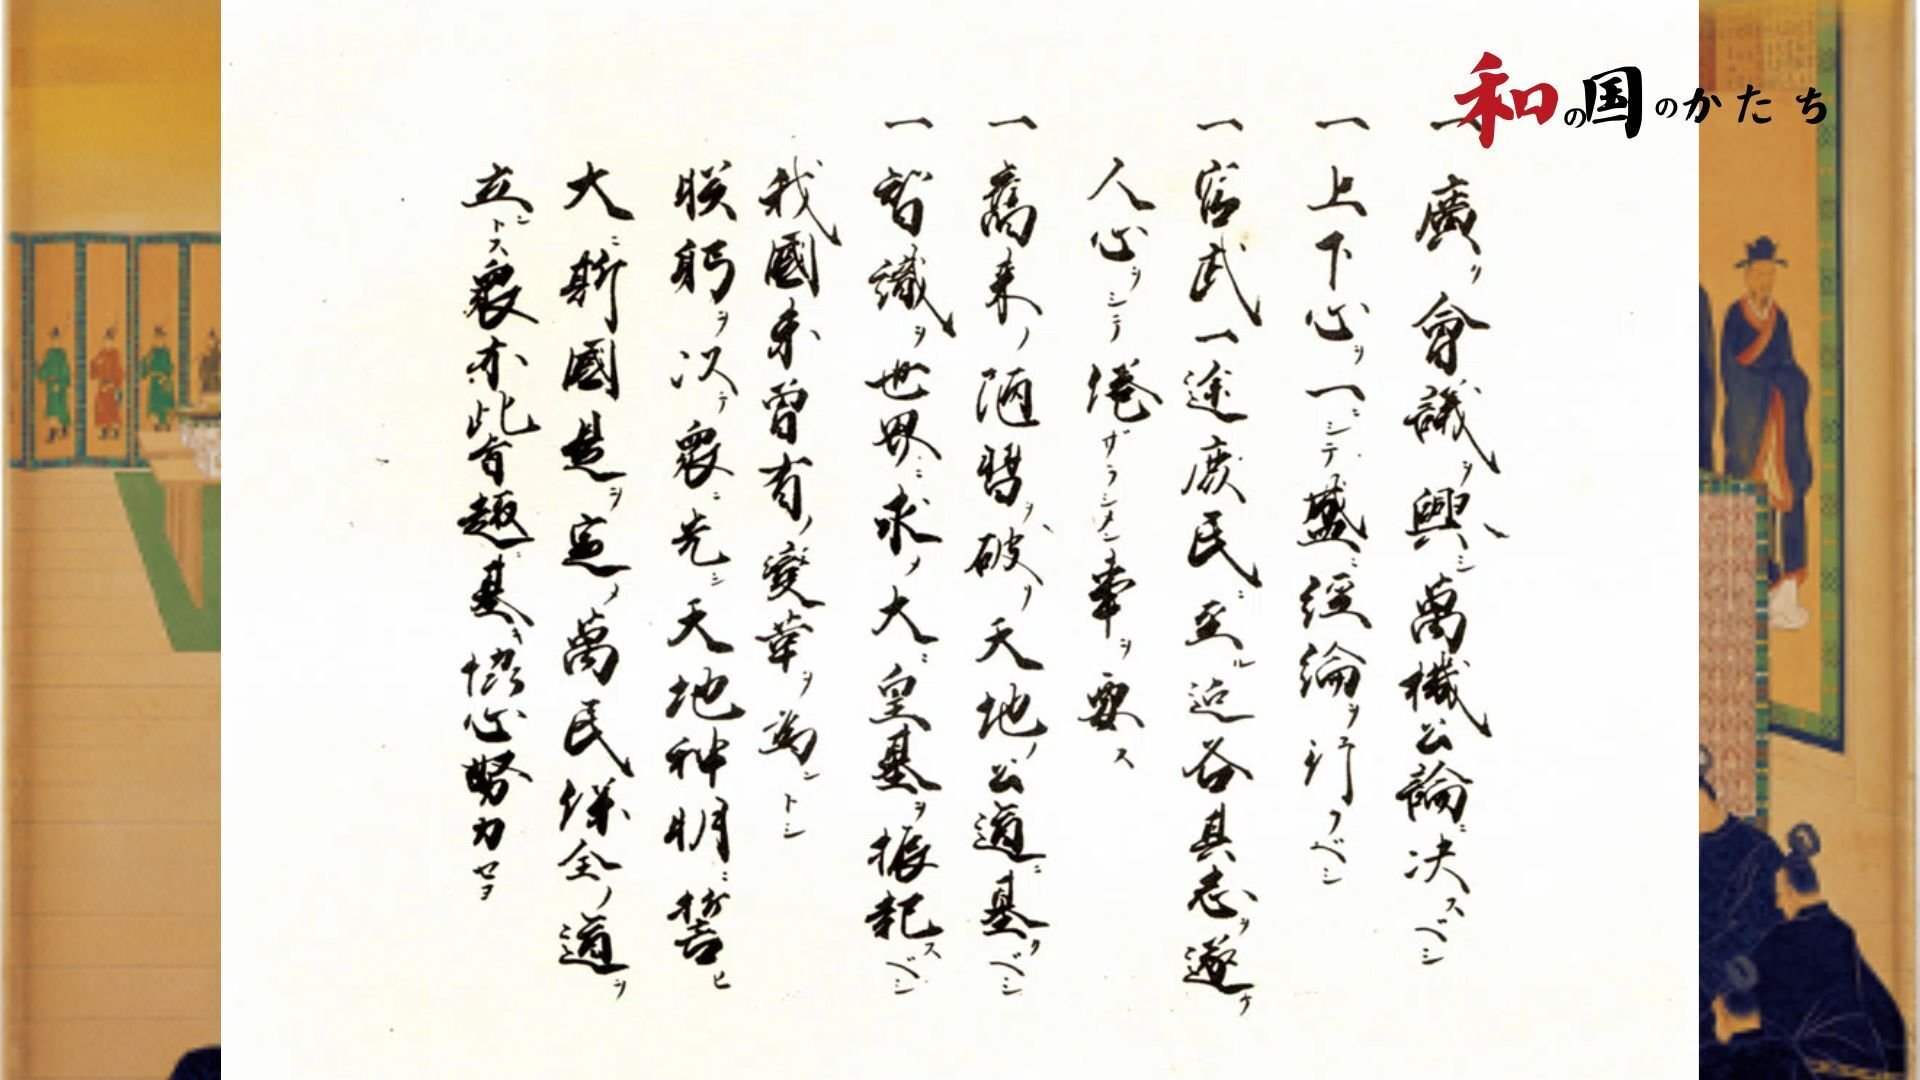 和の国のかたち
一廣ク會議ヲ興シ萬機公論ニ決スベシ
一上下心ヲ一ニシテ盛ニ經綸ヲ行フベシ
一官武一途庶民ニ至ル迄各其志ヲ遂ケ
人心ヲシテ倦ザラシメン事ヲ要ス
一舊来ノ陋習ヲ破リ天地ノ公道ニ基クベシ
一智識ヲ世界ニ求メ大ニ皇基ヲ振起スベシ
我國未曾有ノ變革ヲ為ントシ
朕躬ヲ以テ衆ニ先シ天地神明ニ誓ヒ
大ニ斯國是ヲ定メ萬民保全ノ道ヲ
立ントス衆亦此旨趣ニ基キ協心努力セヨ